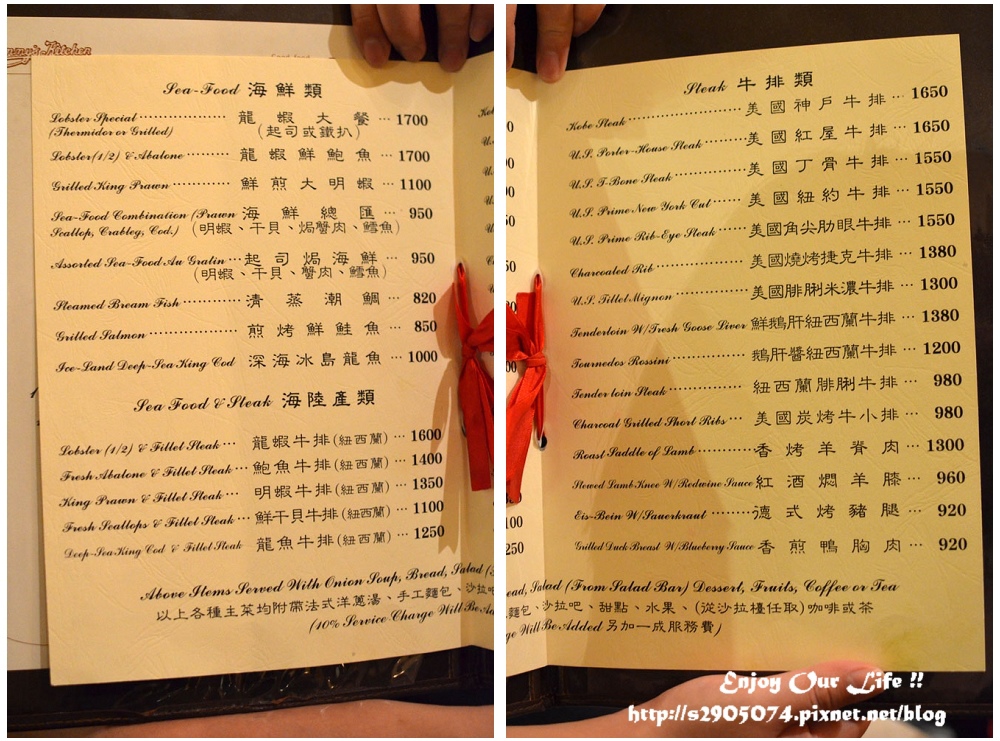 Kitchen
Sea-Food 海鮮類
Lobster Special 龍蝦大餐 1700
(Thermidor or Grilled) (起司或鐵扒)
Lobster (1/2) & Abalone 龍蝦鮮鮑魚 1700
Grilled King Prawn 鮮煎大明蝦 1100
Sea-Food Combination (Prawn 海鮮總匯 950
Scallop, Crableg, Cod.) (明蝦、干貝、焗蟹肉、鱈魚)
Assorted Sea-Food Au Gratin 起司焗海鮮 950
(明蝦、干貝、蟹肉、鱈魚)
Steamed Bream Fish 清蒸潮鯛 820
Grilled Salmon 煎烤鮮鮭魚 850
Ice-Land Deep-Sea King Cod 深海冰島龍魚 1000
Sea Food & Steak 海陸產類
Lobster (1/2) & Fillet Steak 龍蝦牛排(紐西蘭) 1600
Fresh Abalone & Fillet Steak 鮑魚牛排(紐西蘭) 1400
King Prawn & Fillet Steak 明蝦牛排(紐西蘭) 1350
Fresh Scallops & Fillet Steak 鮮干貝牛排(紐西蘭) 1100
Deep-Sea King Cod & Fillet Steak 龍魚牛排(紐西蘭) 1250
Above Items Served With Onion Soup, Bread, Salad
以上各種主菜均附帶法式洋蔥湯、手工麵包、沙拉
(10% Service Charge Will Be Ad
Steak 牛排類
Kobe Steak 美國神戶牛排 1650
U.S. Porter-House Steak 美國紅屋牛排 1650
U.S. T-Bone Steak 美國丁骨牛排 1550
U.S. Prime New York Cut 美國紐約牛排 1550
U.S. Prime Rib-Eye Steak 美國角尖肋眼牛排 1550
Charcoaled Rib 美國燒烤捷克牛排 1380
U.S. Fillet Mignon 美國腓脷米濃牛排 1300
Tenderloin W/Fresh Goose Liver 鮮鵝肝紐西蘭牛排 1380
Tournedos Rossini 鵝肝醬紐西蘭牛排 1200
Tender loin Steak 紐西蘭腓脷牛排 980
Charcoal Grilled Short Ribs 美國炭烤牛小排 980
Roast Saddle of Lamb 香烤羊脊肉 1300
Stewed Lamb Knee W/Redwine Sauce 紅酒燜羊膝 960
Eis-Bein W/Sauerkraut 德式烤豬腿 920
Grilled Duck Breast W/Blueberry Sauce 香煎鴨胸肉 920
ead, Salad (From Salad Bar) Dessert, Fruits, Coffee or Tea
麵包、沙拉吧、甜點、水果、(從沙拉檯任取)咖啡或茶
ge Will Be Added 另加一成服務費)
Enjoy Our Life !!
http://s2905074.pixnet.net/blog